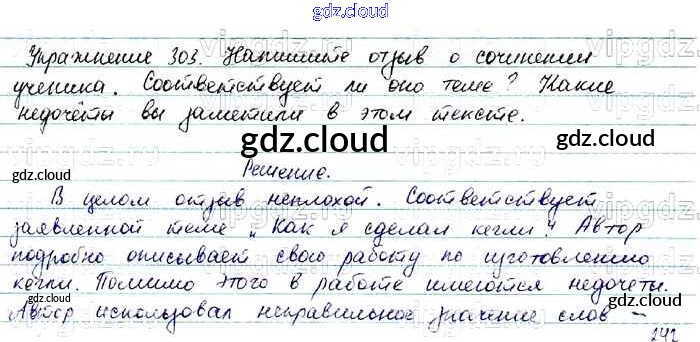 gdz.cloud
Упражнение 303. Напишите отзыв о сочинении
ученика. Соответствует ли оно теме? Какие
недочёты вы заметили в этом тексте.
gdz.cloud
gdz.cloud
gdz.cloud
Решение.
В целом отзыв неплохой. Соответствует
заявленной теме „Как я сделал кегли". Автор
подробно описывает свою работу по изготовлению
кегли. Помимо этого в работе имеются недочёты.
gdz.cloud
gdz.cloud
gdz.cloud
Автор использовал неправильное значение слов –
242